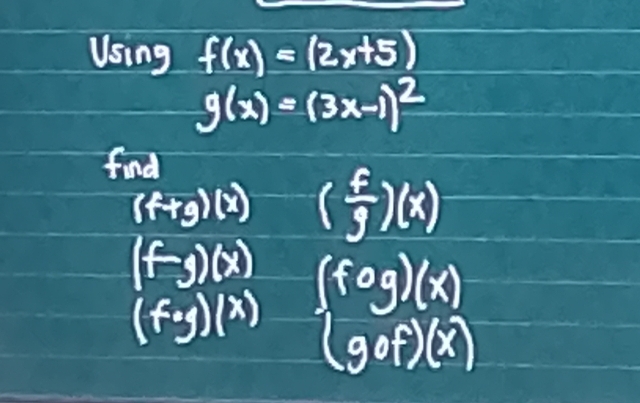 Using f(x) = (2x+5)
g(x) = (3x-1)²
find
(f+g)(x)
(f-g)(x)
(f•g)(x)
(f/g)(x)
(fog)(x)
(gof)(x)